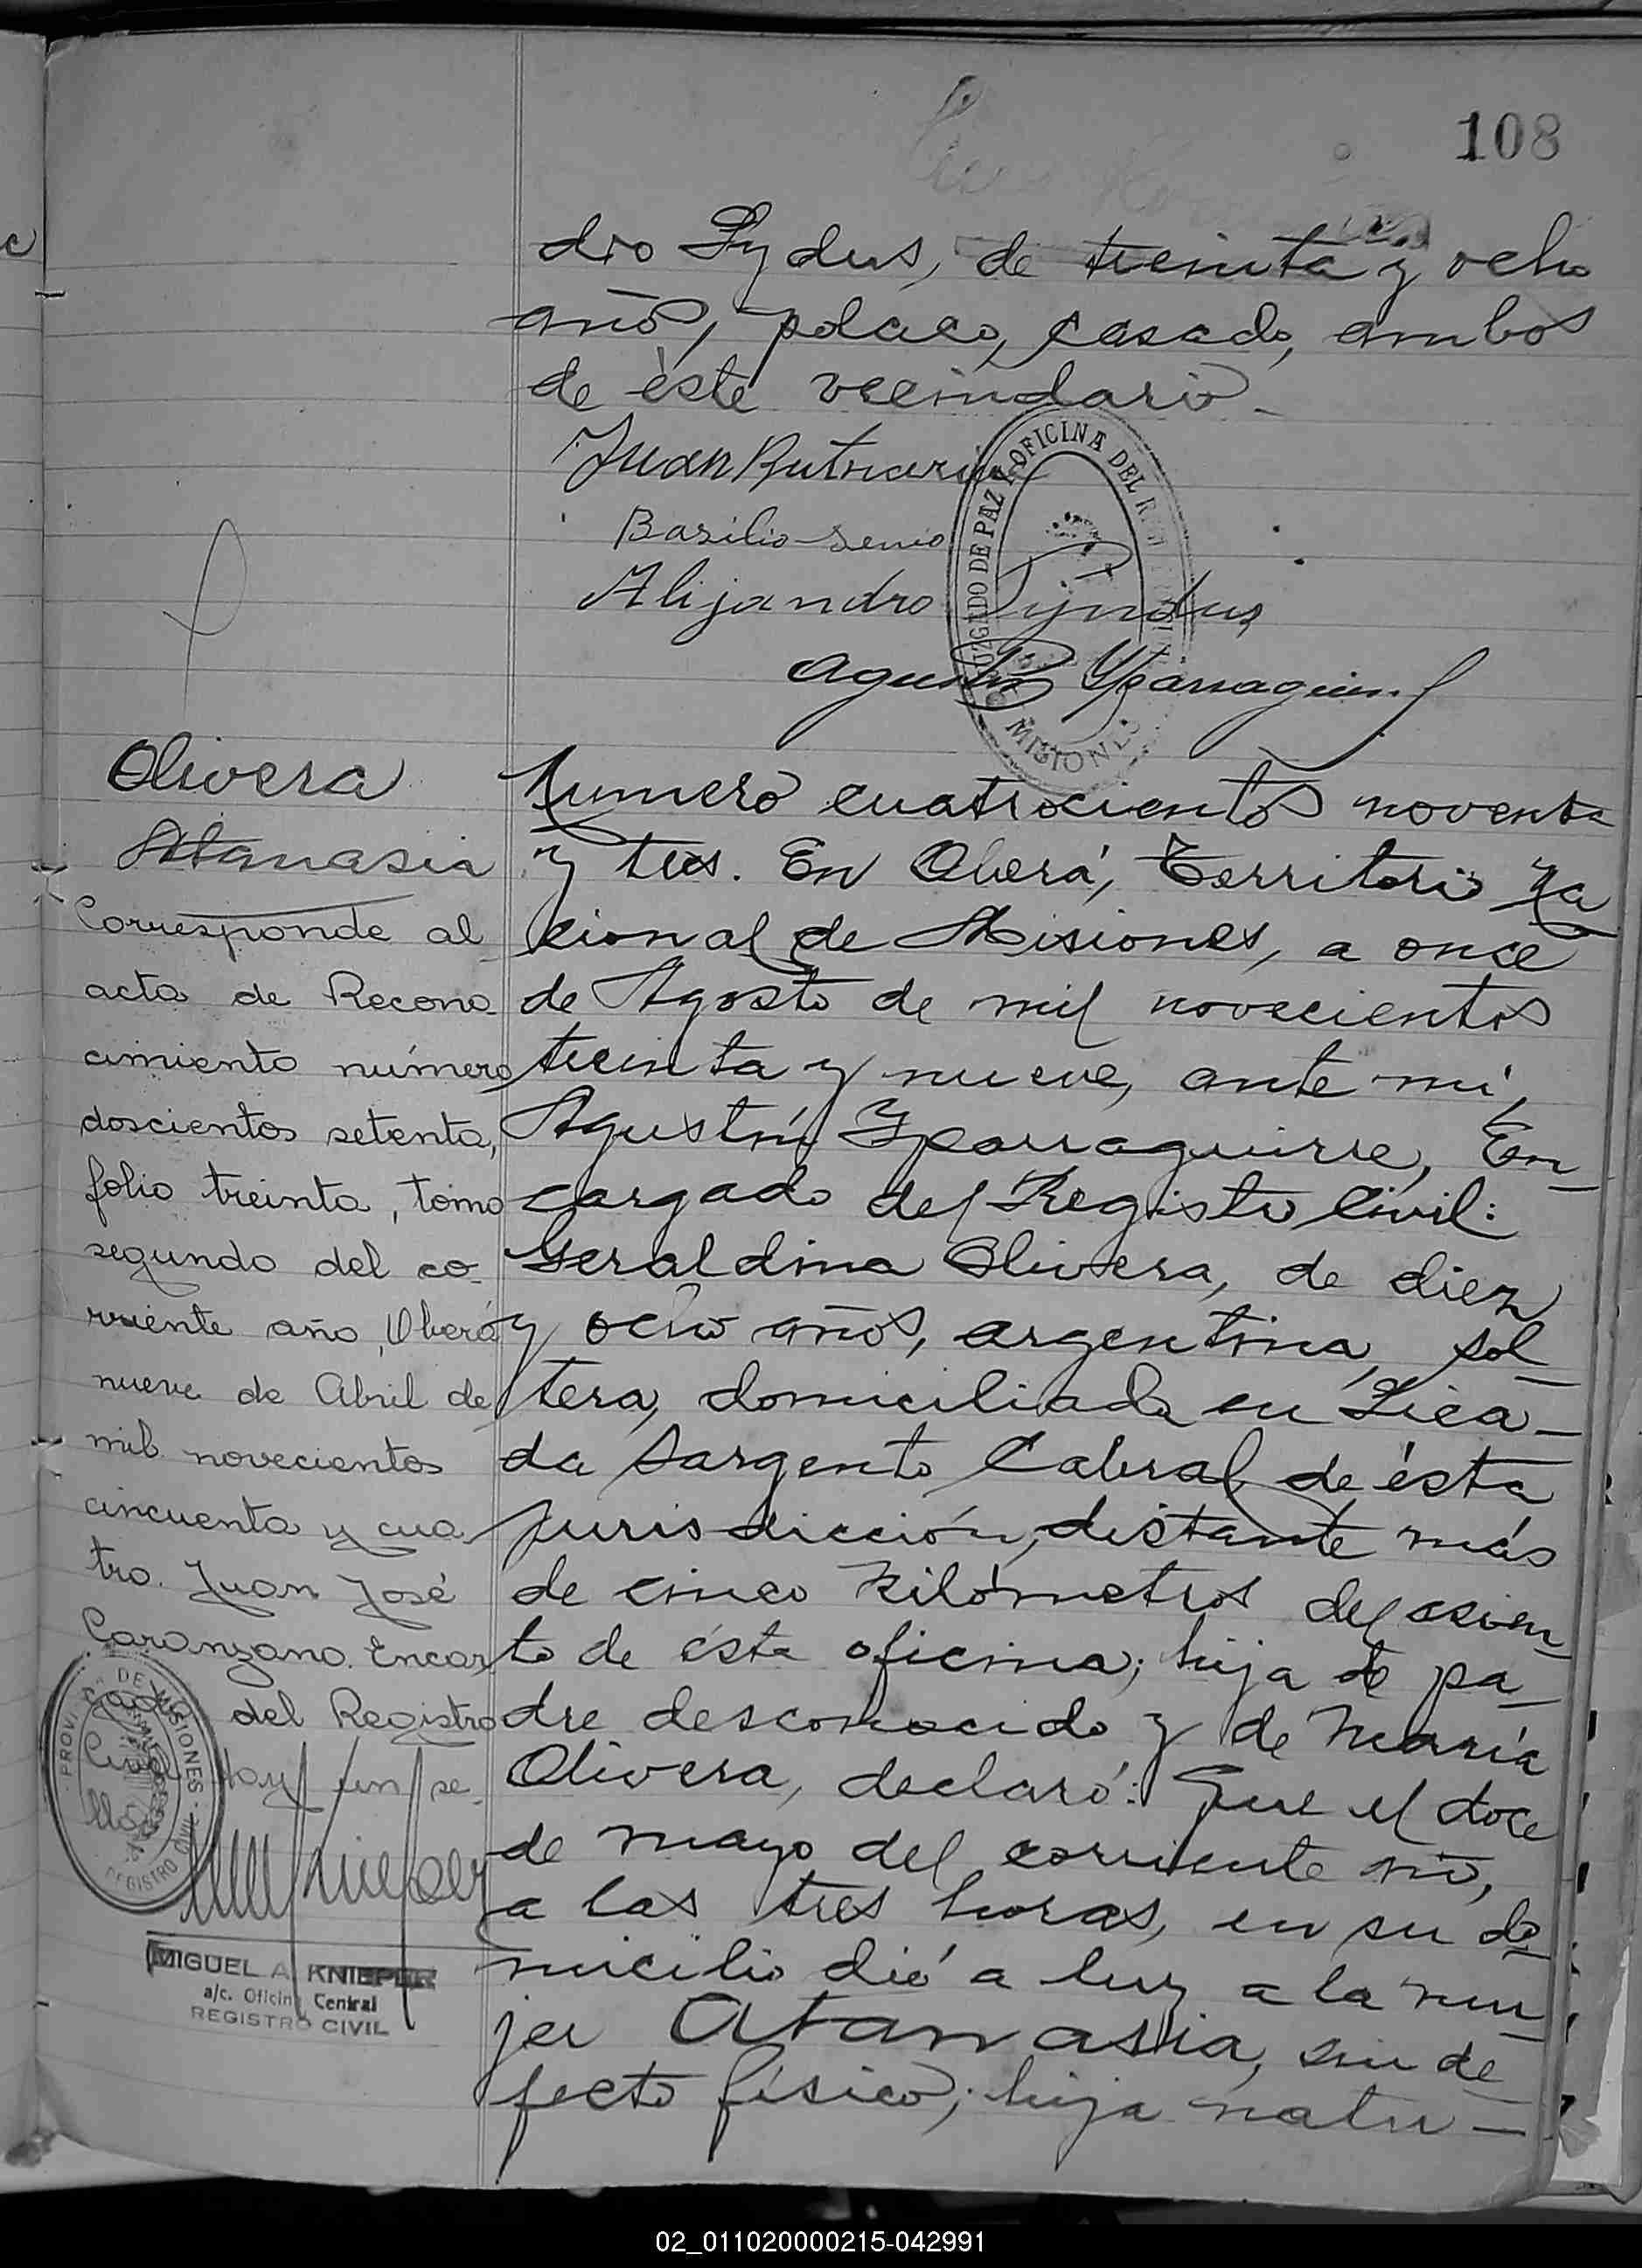 108
dro Pydus, de treinta y ocho
años, polaco, casado, ambos
de éste vecindario.
Juan
Basilio
Alijandro Pyndus
Agustín Yparraguirre
JUZGADO DE PAZ Y OFICINA DEL
MISIONES
Olivera
Atanasia
Corresponde al
acta de Recono
cimiento número
doscientos setenta,
folio treinta, tomo
segundo del co-
rriente año, Oberá
nueve de Abril de
mil novecientos
cincuenta y cua
tro. Juan José
Caranzano. Encar
gado del Registro
Civil Hay un se-
llo
PROVINCIA DE MISIONES
REGISTRO CIVIL
MIGUEL A. KNIEPER
a/c. Oficina Central
REGISTRO CIVIL
Numero cuatrocientos noventa
y tres. En Oberá, Territorio Na
cional de Misiones, a once
de Agosto de mil novecientos
treinta y nueve, ante mi,
Agustín Yparraguirre, En-
cargado del Registro Civil:
Geraldina Olivera, de diez
y ocho años, argentina, sol-
tera, domiciliada en Pica-
da Sargento Cabral de ésta
jurisdicción, distante más
de cinco kilómetros del asien-
to de ésta oficina; hija de pa-
dre desconocido y de María
Olivera, declaró: Que el doce
de mayo del corriente año,
a las tres horas, en su do-
micilio dió a luz a la mu-
jer Atanasia, sin de-
fecto físico; hija natu-
02_011020000215-042991